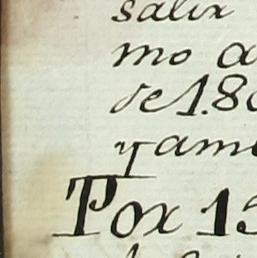 salix
mo a
de 1.80
y ame
Pox 15